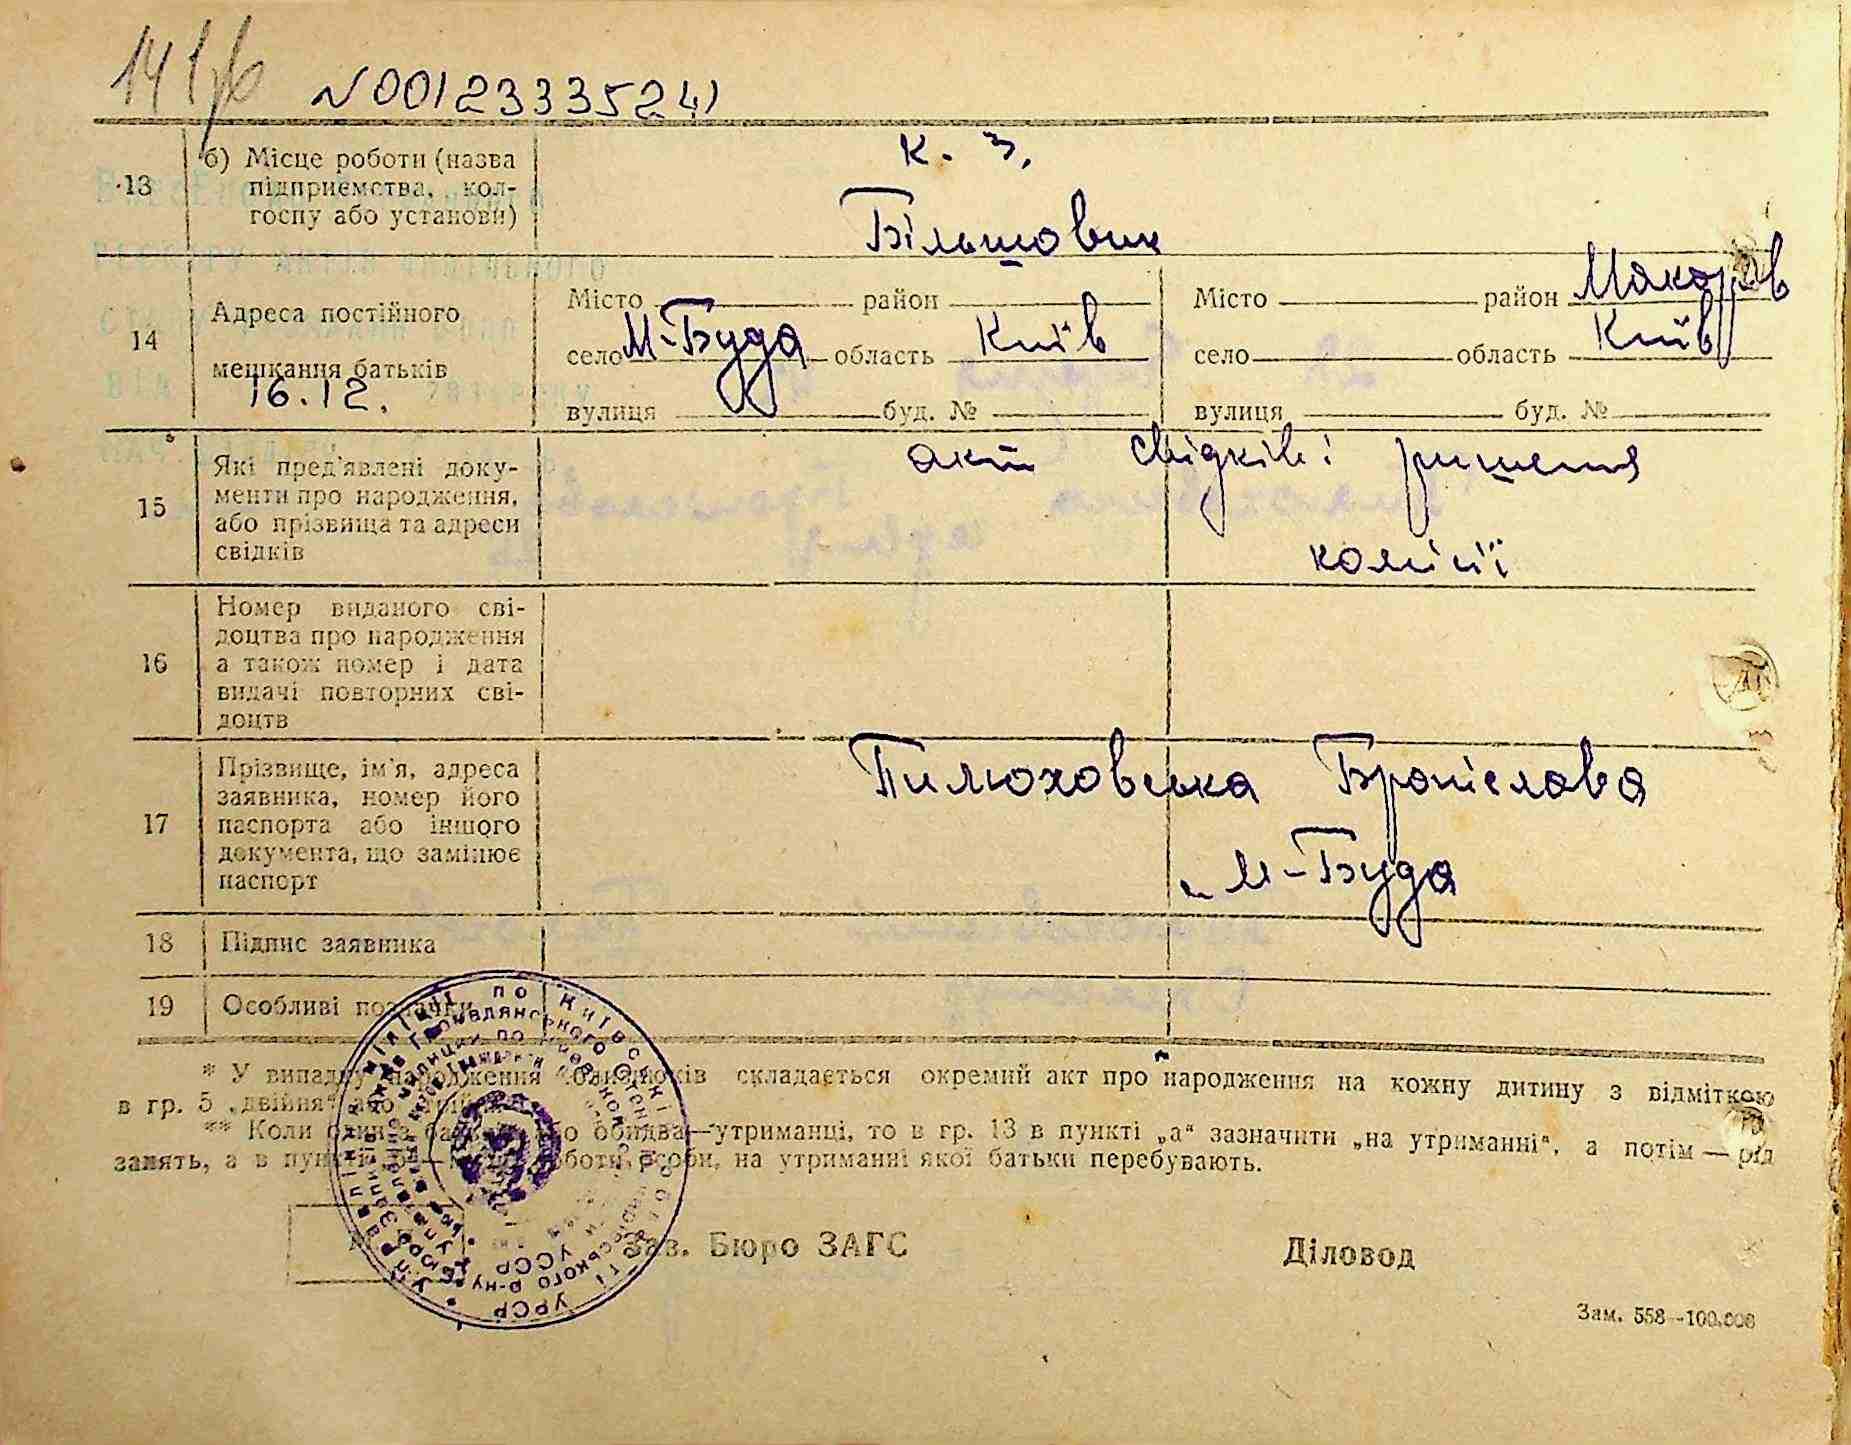 N00123335241
к. з.
13 б) Місце роботи (назва
підприємства, кол-
госпу або установи)
Більшовик
14 Адреса постійного
мешкання батьків
16.12.
Місто район
село М-Буда область Київ
вулиця буд. №
Місто район Макорів
село область Київ
вулиця буд. №
15 Які пред'явлені доку-
менти про народження,
або прізвища та адреси
свідків
акт свідків і ришення
комісії
16 Номер виданого сві-
доцтва про народження
а також номер і дата
видачі повторних сві-
доцтв
17 Прізвище, ім'я, адреса
заявника, номер його
паспорта або іншого
документа, що замінює
паспорт
Пилюховська Броніслава
М-Буда
18 Підпис заявника
19 Особливі позначки
* У випадку народження близнюків складається окремий акт про народження на кожну дитину з відміткою
в гр. 5 „двійня“ або
** Коли один з батьків або обидва—утриманці, то в гр. 13 в пункті „а“ зазначити „на утриманні“, а потім — рід
занять, а в пункті роботи особи, на утриманні якої батьки перебувають.
Зав. Бюро ЗАГС
Діловод
Зам. 558—100.000